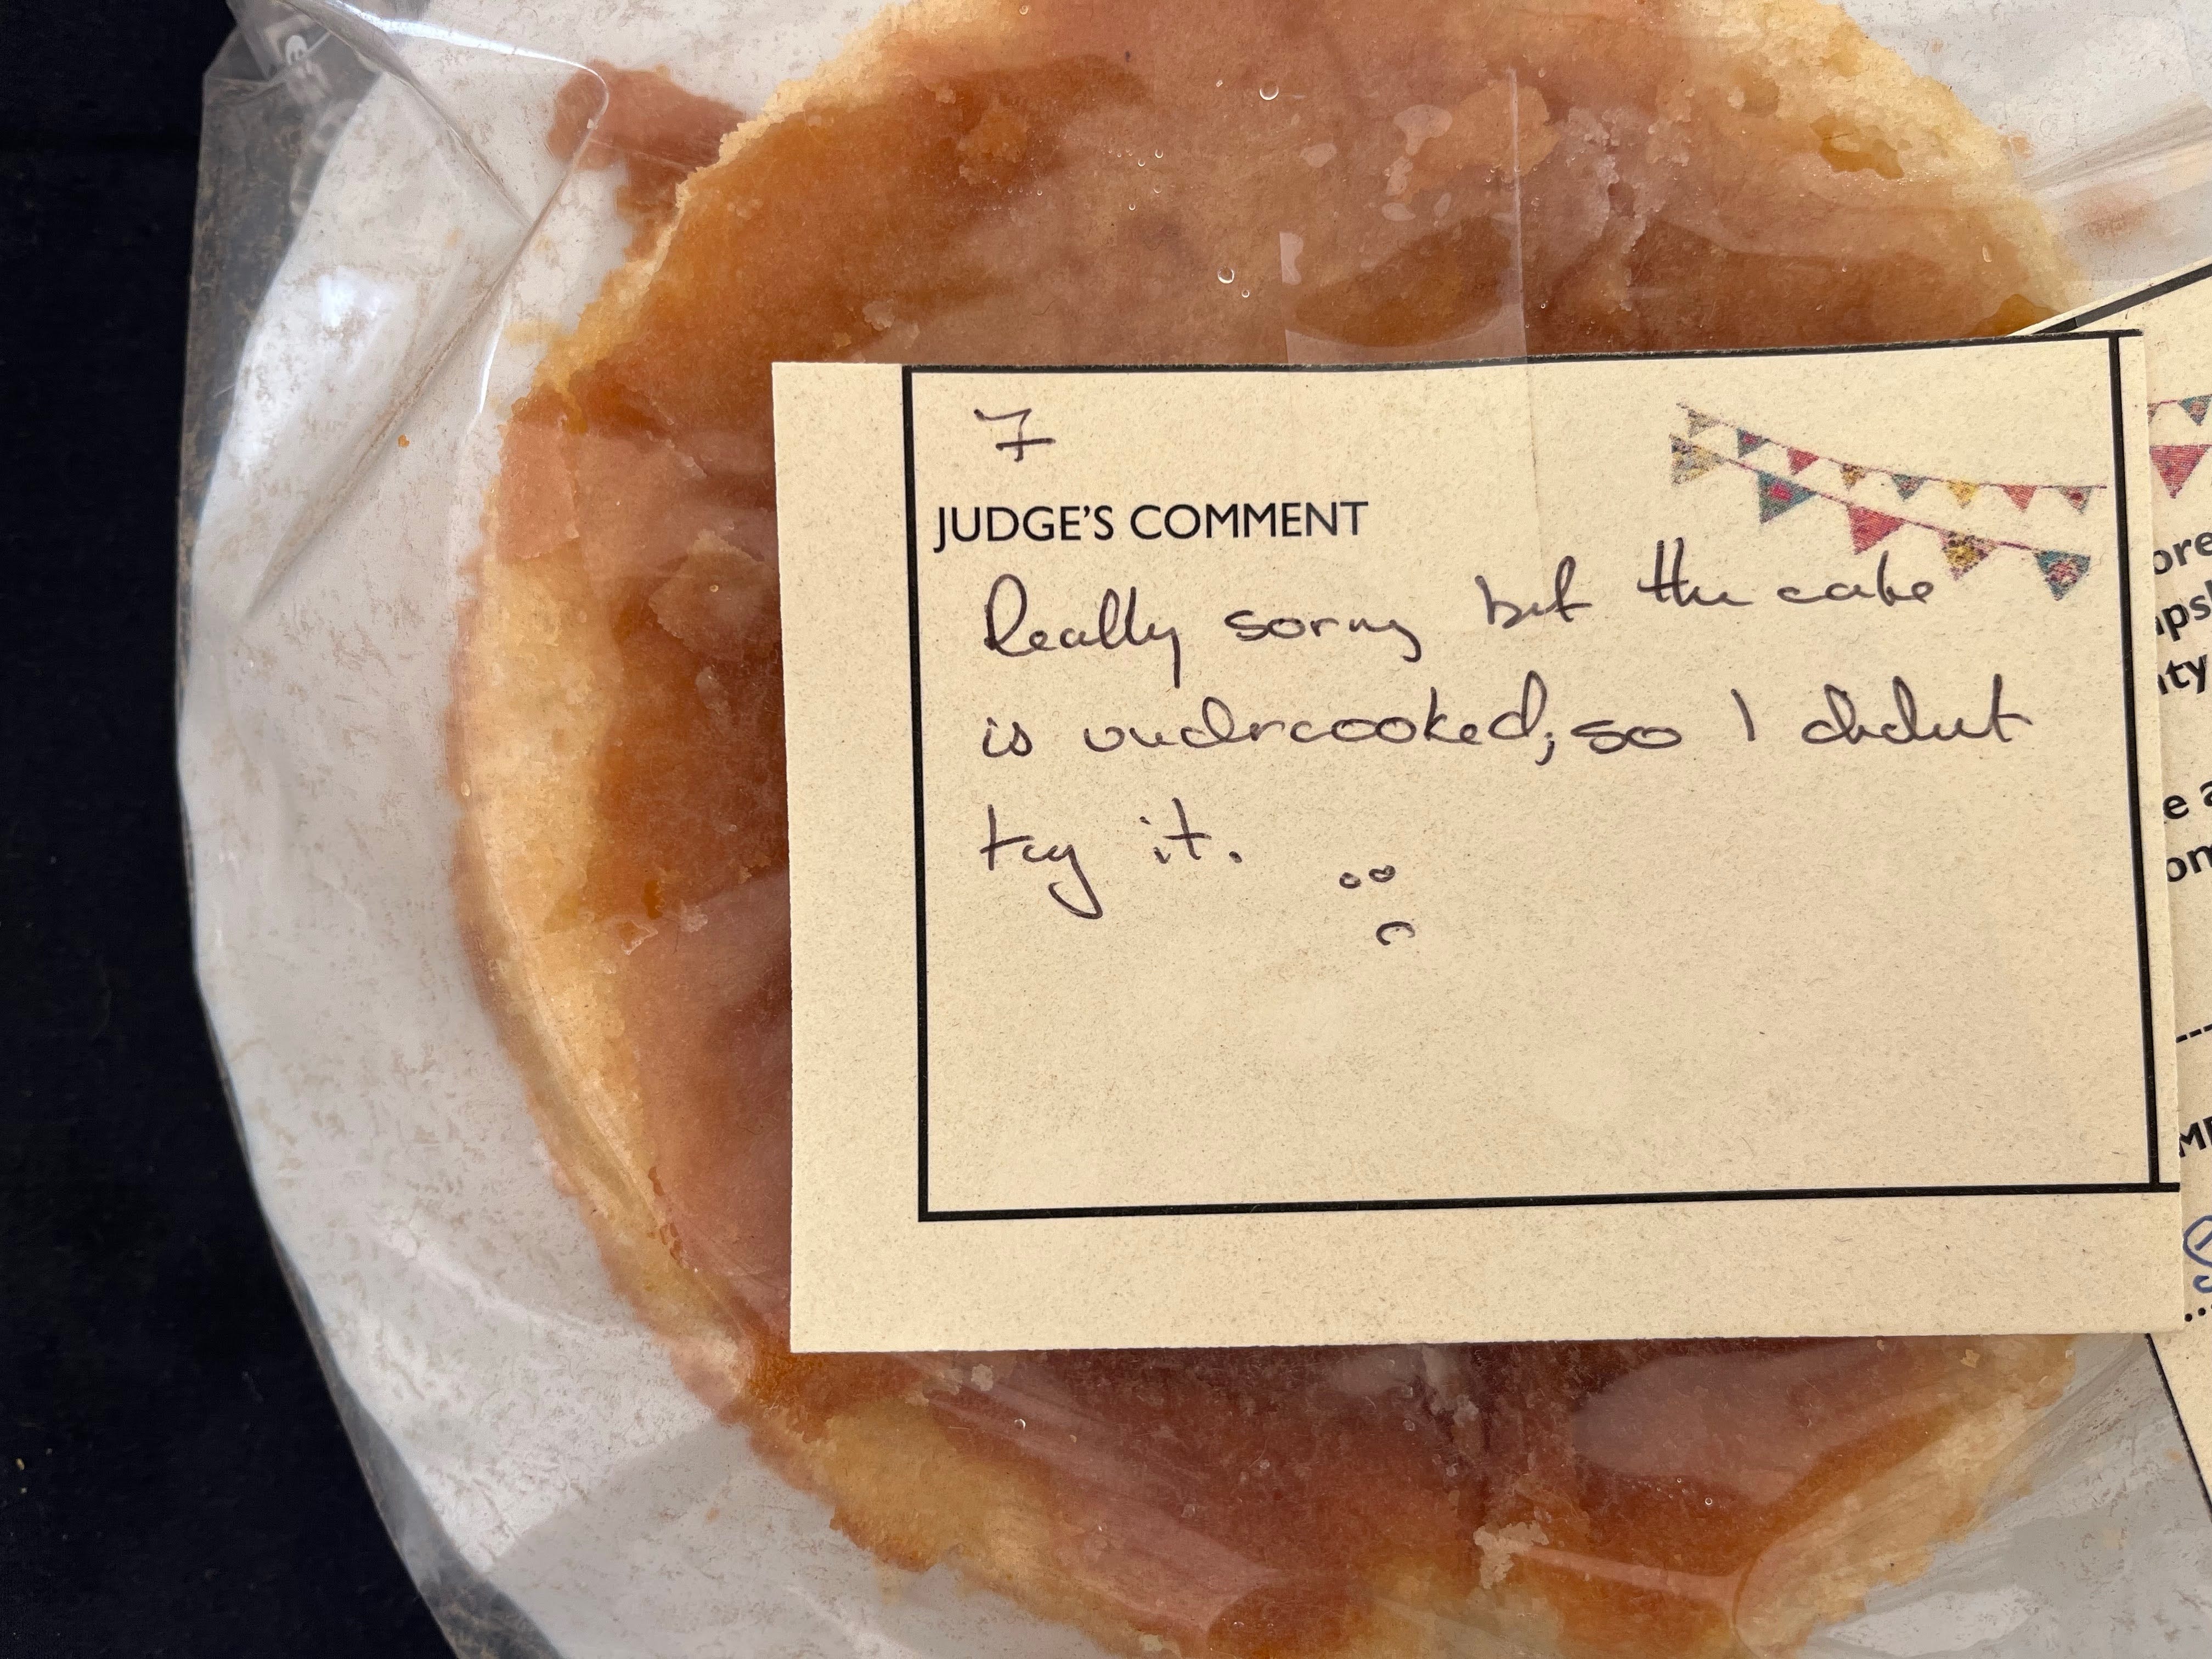 7
JUDGE'S COMMENT
Really sorry but the cake
is undercooked, so I didnt
try it.
ore
ips
ity
e a
on